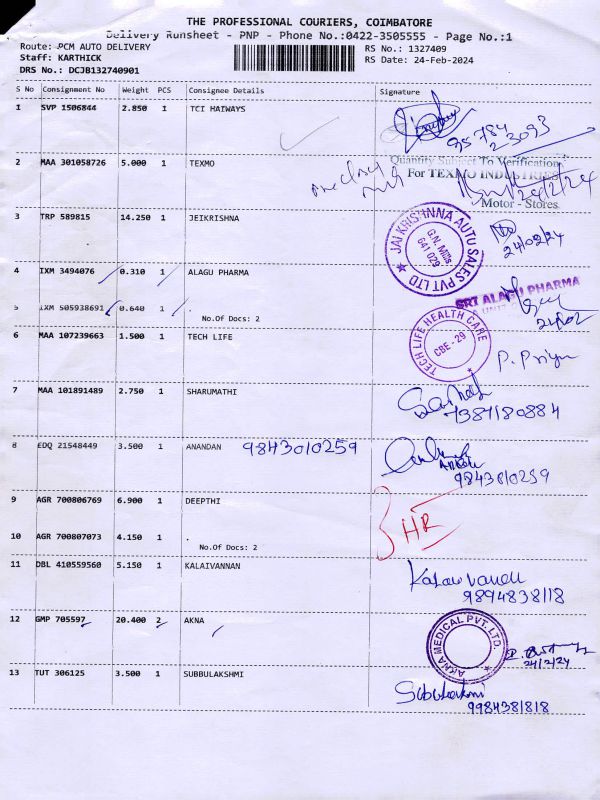 THE PROFESSIONAL COURIERS, COIMBATORE
Delivery Runsheet - PNP - Phone No.:0422-3505555 - Page No.:1
Route: PCM AUTO DELIVERY
RS No.: 1327409
Staff: KARTHICK
RS Date: 24-Feb-2024
DRS No.: DCJB132740901
S No Consignment No Weight PCS Consignee Details Signature
1 SVP 1506844 2.850 1 TCI HAIWAYS
95784
23093
2 MAA 301058726 5.000 1 TEXMO
Quantity Subject To Verification
For TEXMO INDUSTRIES
24/2/24
Motor - Stores
3 TRP 589815 14.250 1 JEIKRISHNA
JAI KRISHNNA AUTU SALES PVT LTD
G.N. Mills
641 029
24/02/24
4 IXM 3494076 0.310 1 ALAGU PHARMA
SRI ALAGU PHARMA
5 IXM 505938691 0.640 1 .
No.Of Docs: 2
6 MAA 107239663 1.500 1 TECH LIFE
TECH LIFE HEALTH CARE
CBE - 29
P. Priya
7 MAA 101891489 2.750 1 SHARUMATHI
8 EDQ 21548449 3.500 1 ANANDAN 9843010259
9 AGR 700806769 6.900 1 DEEPTHI
3 HR
10 AGR 700807073 4.150 1 .
No.Of Docs: 2
11 DBL 410559560 5.150 1 KALAIVANNAN
9894838118
12 GMP 705597 20.400 2 AKNA
AKNA MEDICAL PVT. LTD.
24/2/24
13 TUT 306125 3.500 1 SUBBULAKSHMI
9984381818